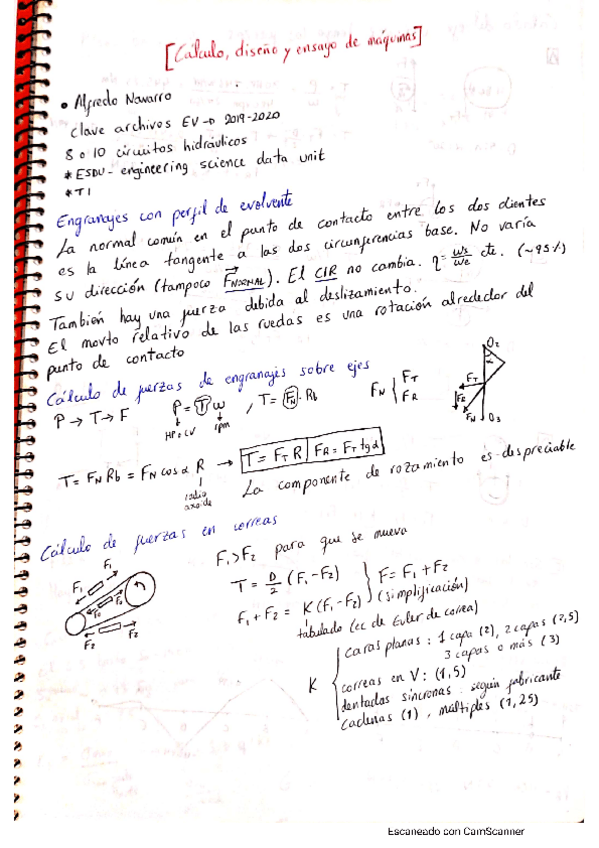 [Cálculo, diseño y ensayo de máquinas]
• Alfredo Navarro
clave archivos EV → 2019-2020
8 o 10 circuitos hidráulicos
* ESDU - engineering science data unit
* T1
Engranajes con perfil de evolvente
La normal común en el punto de contacto entre los dos dientes
es la línea tangente a las dos circunferencias base. No varía
su dirección (tampoco FNORMAL). El CIR no cambia. η = ωs/ωe cte. (~95%)
También hay una fuerza debida al deslizamiento.
El movto relativo de las ruedas es una rotación alrededor del
punto de contacto
Cálculo de fuerzas de engranajes sobre ejes
P → T → F P = T ω , T = FN · Rb FN { FT FR
HP o CV rpm
O2
α
FT
FR
FN
O3
T = FN Rb = FN cos α R → T = FT R | FR = FT tg α
radio
axoide
La componente de rozamiento es despreciable
Cálculo de fuerzas en correas
F1 > F2 para que se mueva
F1 F1
F0 F0
F2 F2
T = D/2 (F1 - F2)
F1 + F2 = K (F1 - F2)
} F = F1 + F2
(simplificación)
tabulado (ec de Euler de correa)
K { caras planas : 1 capa (2), 2 capas (2,5)
3 capas o más (3)
correas en V : (1,5)
dentadas síncronas : según fabricante
cadenas (1) , múltiples (1,25)
Escaneado con CamScanner